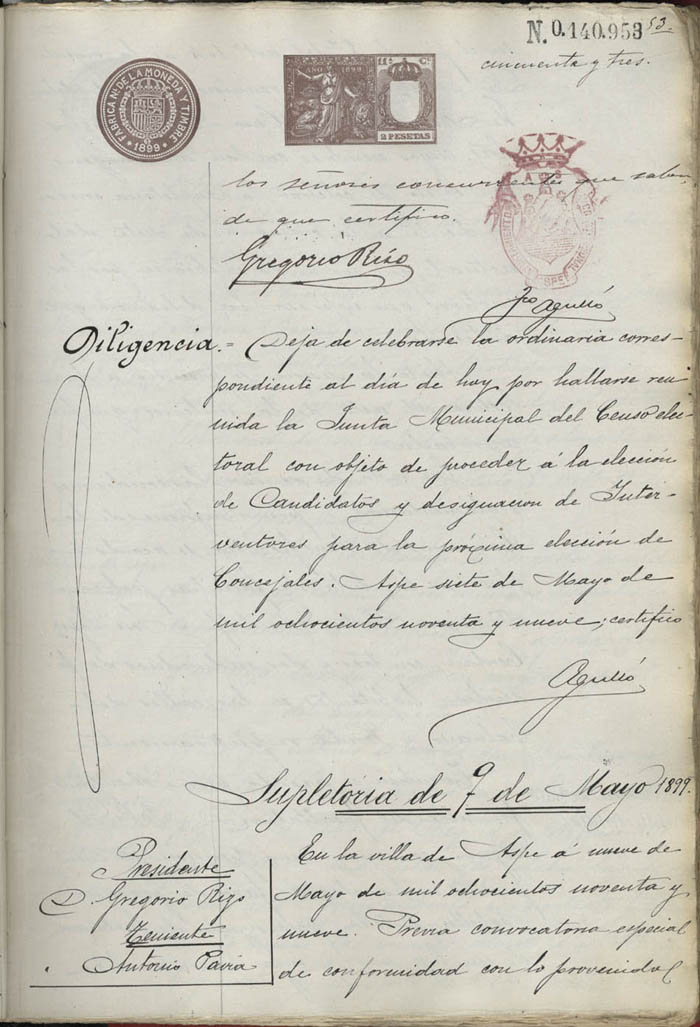 N. 0.140.953
53
cincuenta y tres.
FABRICA N. DE LA MONEDA Y TIMBRE
1899
AÑO 1899
11ª Cª
2 PESETAS
los señores concurrentes que saben
de que certifico.
Gregorio Rizo
Fco Agulló
Diligencia.= Deja de celebrarse la ordinaria corres-
pondiente al día de hoy por hallarse reu
nida la Junta Municipal del Censo elec-
toral con objeto de proceder á la elección
de Candidatos y designacion de Inter-
ventores para la próxima elección de
Concejales. Aspe siete de Mayo de
mil ochocientos noventa y nueve; certifico
Agulló
Supletoria de 9 de Mayo 1899.
Presidente
D. Gregorio Rizo
Teniente
Antonio Pavia
En la villa de Aspe á nueve de
Mayo de mil ochocientos noventa y
nueve. Previa convocatoria especial
de conformidad con lo prevenido